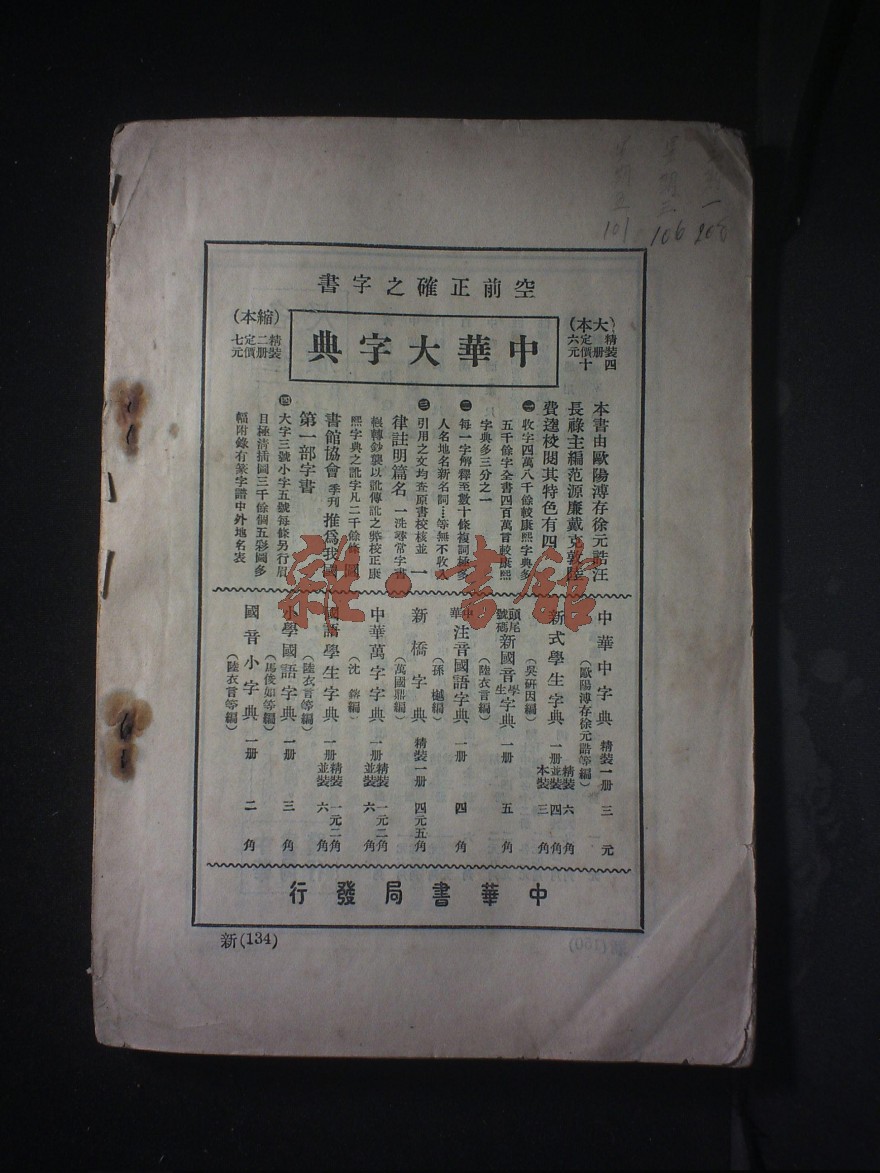 空前正確之字書
中華大字典
（大本）
精裝四册
定價十六元
（縮本）
精裝二册
定價七元
本書由歐陽溥存徐元誥汪
長祿主編范源廉戴克敦陸
費逵校閱其特色有四
㊀收字四萬八千餘較康熙字典多
五千餘字全書四百萬言較康熙
字典多三分之一
㊁每一字解釋至數十條複詞極多
人名地名新名詞…等無不收入
㊂引用之文均查原書校核並一
律註明篇名一洗尋常字書
輾轉鈔襲以訛傳訛之弊校正康
熙字典之訛字凡二千餘條圖
書館協會季刊推爲我國
第一部字書
㊃大字三號小字五號每條另行眉
目極清插圖三千餘個五彩圖多
幅附錄有篆字譜中外地名表
中華中字典 精裝一册 三元
（歐陽溥存徐元誥等編）
新式學生字典 一册 精裝六角 並裝四角 本裝三角
（吳研因編）
頭尾號碼新國音學生字典 一册 五角
（陸衣言編）
中華注音國語字典 一册 四角
（孫樾編）
新橋字典 精裝一册 四元五角
（萬國鼎編）
中華萬字字典 一册 精裝一元二角 並裝六角
（沈鎔編）
國語學生字典 一册 精裝一元二角 並裝六角
（陸衣言等編）
小學國語字典 一册 三角
（馬俊如等編）
國音小字典 一册 二角
（陸衣言等編）
中華書局發行
新(134)
雜·書館
101
106
200